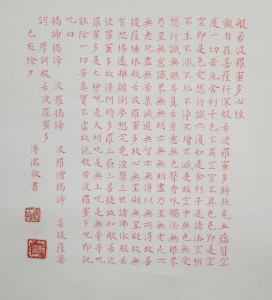 般若波羅蜜多心經
觀自在菩薩行深般若波羅蜜多時照見五蘊皆空
度一切苦厄舍利子色不異空空不異色色即是
空空即是色受想行識亦復如是舍利子是諸法空相
不生不滅不垢不淨不增不減是故空中無色無受
想行識無眼耳鼻舌身意無色聲香味觸法無眼界
乃至無意識界無無明亦無無明盡乃至無老死亦
無老死盡無苦集滅道無智亦無得以無所得故菩
提薩埵依般若波羅蜜多故心無罣礙無罣礙故無有
恐怖遠離顛倒夢想究竟涅槃三世諸佛依般若波
羅蜜多故得阿耨多羅三藐三菩提故知般若波
羅蜜多是大神呪是大明呪是無上呪是無等等呪
能除一切苦真實不虛故說般若波羅蜜多呪即說
呪曰
揭諦揭諦 波羅揭諦 波羅僧揭諦 菩提薩婆
訶 摩訶般若波羅蜜多
己亥除夕 溥儒敬書